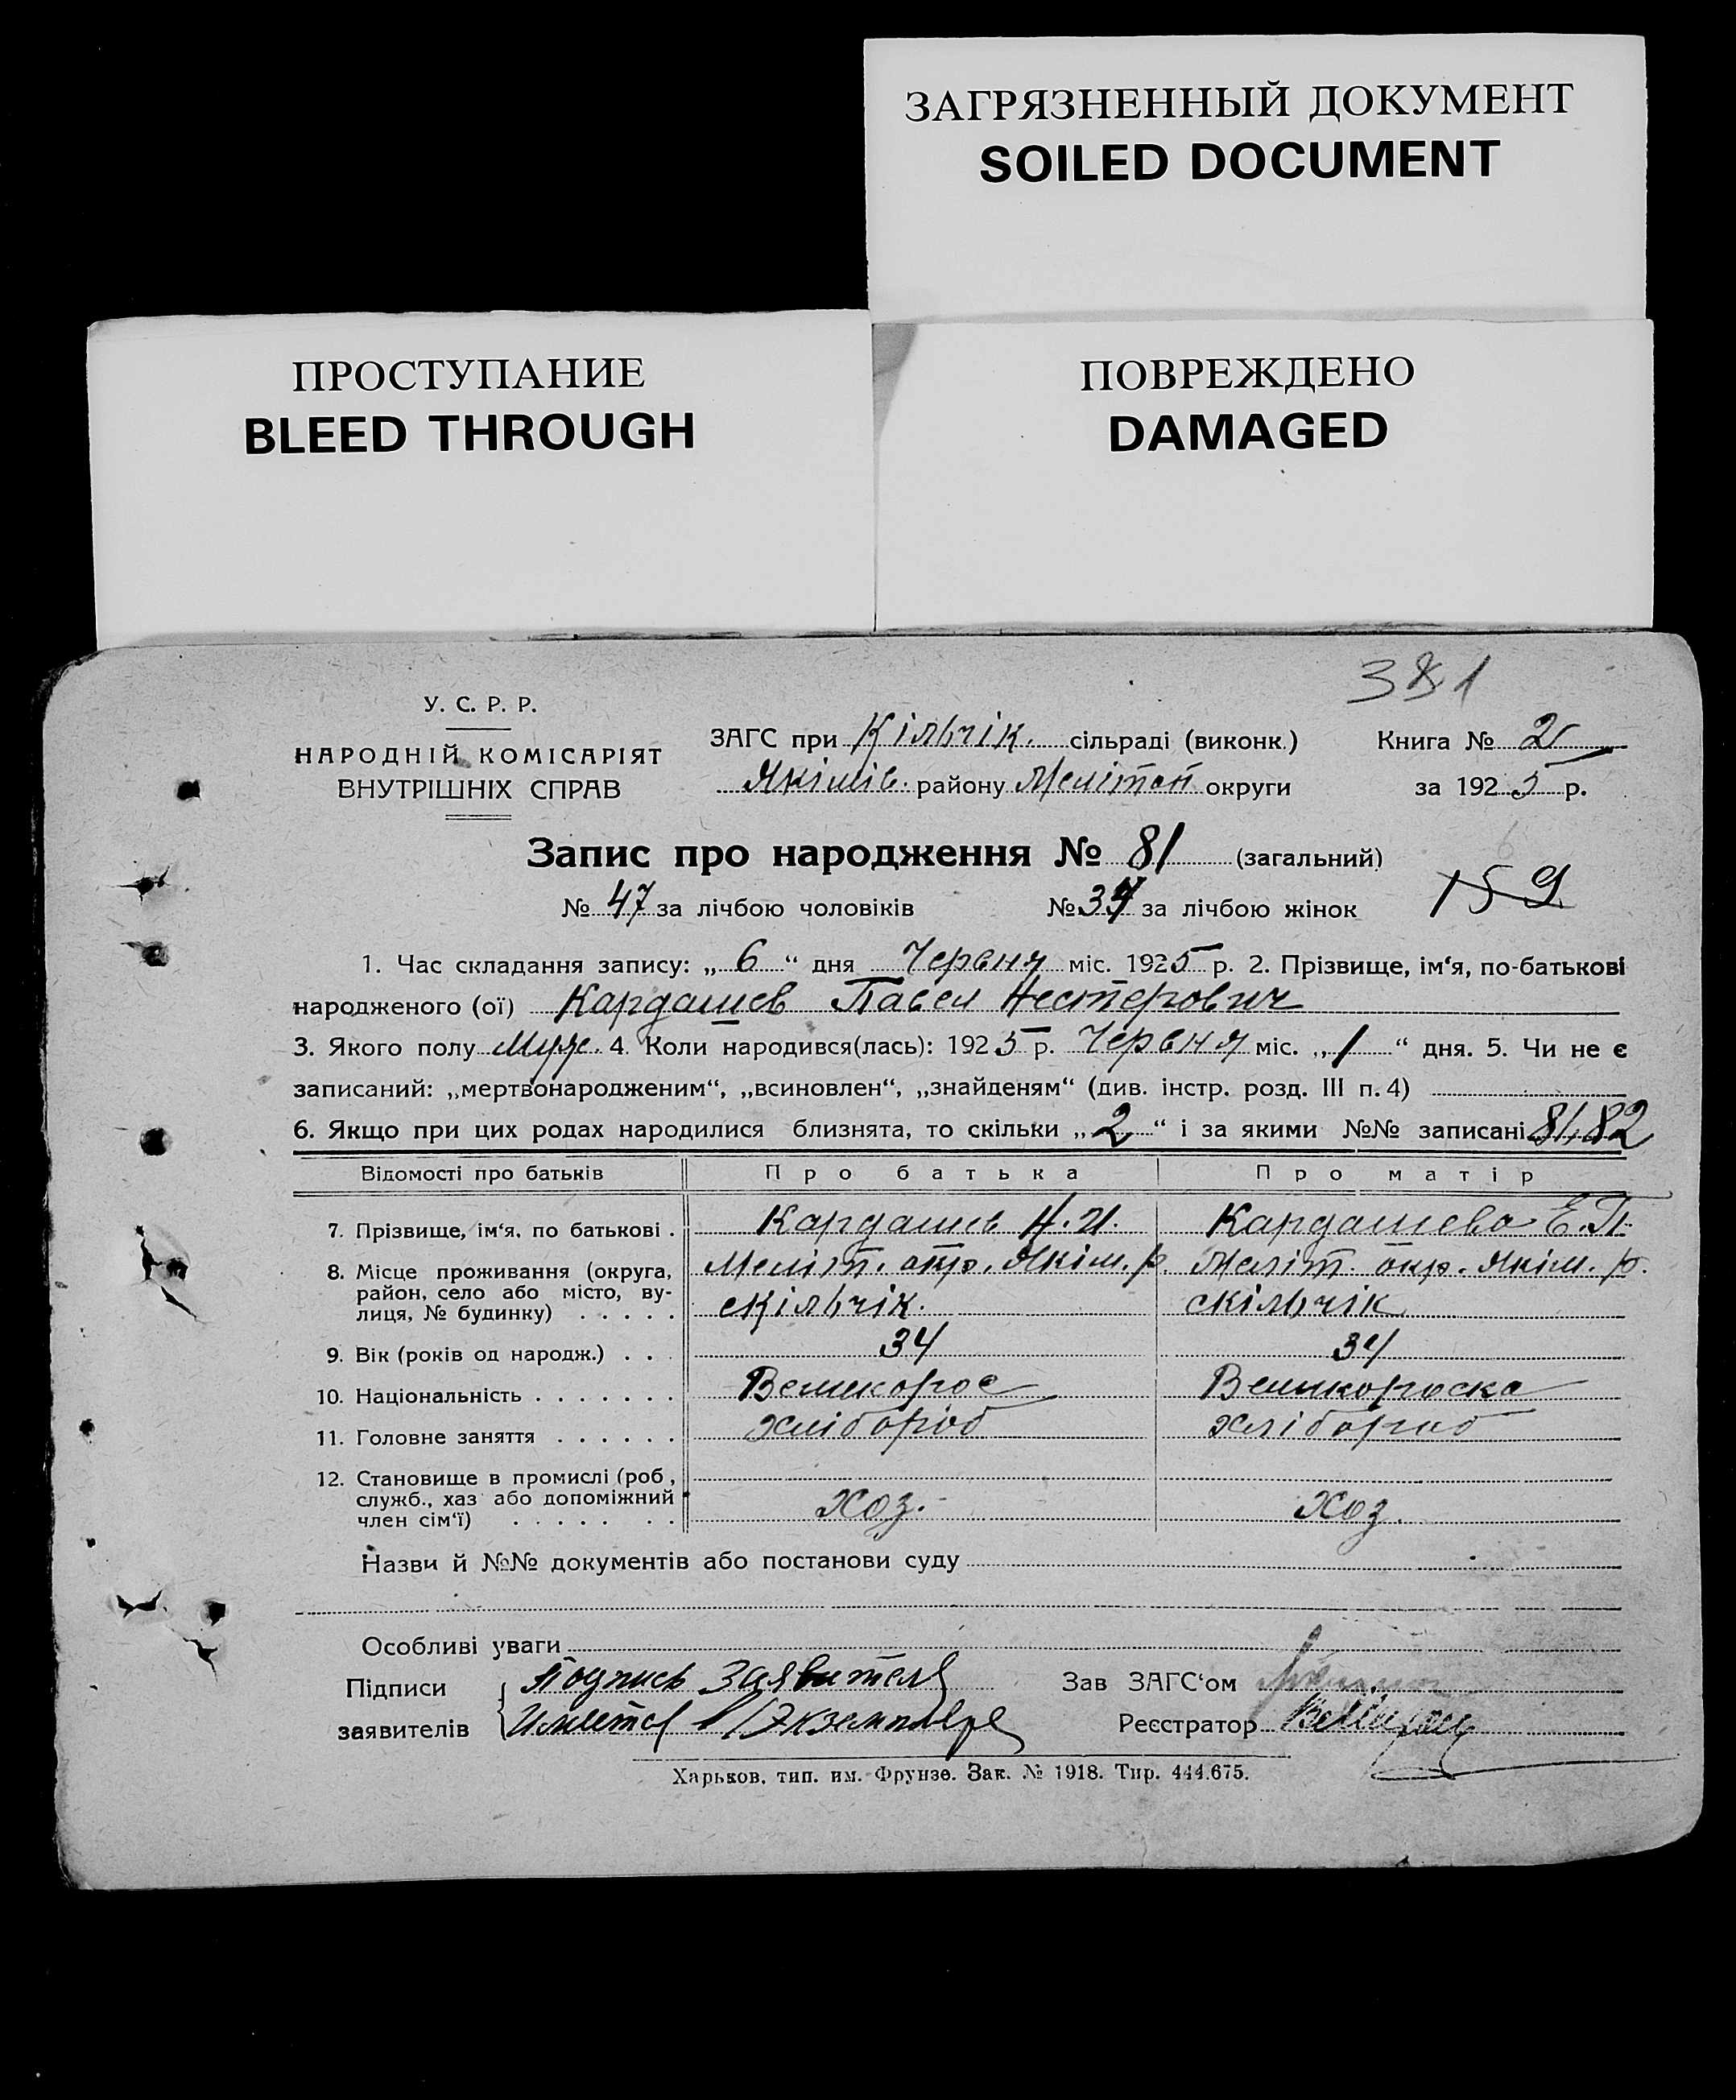 ЗАГРЯЗНЕННЫЙ ДОКУМЕНТ
SOILED DOCUMENT
ПРОСТУПАНИЕ
BLEED THROUGH
ПОВРЕЖДЕНО
DAMAGED
У. С. Р. Р.
НАРОДНІЙ КОМІСАРІЯТ
ВНУТРІШНІХ СПРАВ
ЗАГС при Кільчік. сільраді (виконк.)
Якімів. району Мелітоп округи
Книга № 2
за 1925 р.
Запис про народження № 81 (загальний)
№ 47 за лічбою чоловіків № 34 за лічбою жінок 159
1. Час складання запису: „ 6 “ дня Червня міс. 1925 р. 2. Прізвище, ім‘я, по-батькові
народженого (ої) Кардашев Павел Нестерович
3. Якого полу Муж. 4. Коли народився(лась): 1925 р. Червня міс. „ 1 “ дня. 5. Чи не є
записаний: „мертвонародженим“, „всиновлен“, „знайденям“ (див. інстр. розд. III п. 4)
6. Якщо при цих родах народилися близнята, то скільки „ 2 “ і за якими №№ записані 81,82
Відомості про батьків Про батька Про матір
7. Прізвище, ім‘я, по батькові . Кардашев Н. И. Кардашева Е. П.
8. Місце проживання (округа, район, село або місто, вулиця, № будинку) . . . . . Меліт. окр. Якім. р. Меліт. окр. Якім. р.
с Кільчік. с Кільчік
9. Вік (років од народж.) . . . 34 34
10. Національність . . . . . . . Великорос Великороска
11. Головне заняття . . . . . . Хлібороб Хлібороб
12. Становище в промислі (роб, служб., хаз або допоміжний
член сім‘ї) . . . . . . . Хоз. Хоз.
Назви й №№ документів або постанови суду
Особливі уваги
Підписи Подпись Заявителя Зав ЗАГС‘ом
заявителів Имеется в 1 Экземпляре Реєстратор
Харьков, тип. им. Фрунзе. Зак. № 1918. Тир. 444.675.